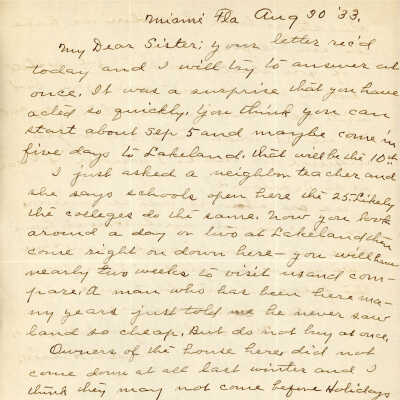 Miami Fla Aug 30 '33.
My Dear Sister; your letter rec'd
today and I will try to answer at
once. It was a surprise that you have
acted so quickly. You think you can
start about Sep 5 and maybe come in
five days to Lakeland. that will be the 10th
I just asked a neighbor teacher and
she says schools open here the 25. Likely
the colleges do the same. Now you look
around a day or two at Lakeland then
come right on down here - you will have
nearly two weeks to visit us and com-
pare. A man who has been here ma-
ny years just told me he never saw
land so cheap. But do not buy at once.
Owners of the house here did not
come down at all last winter and I
think they may not come before Holidays